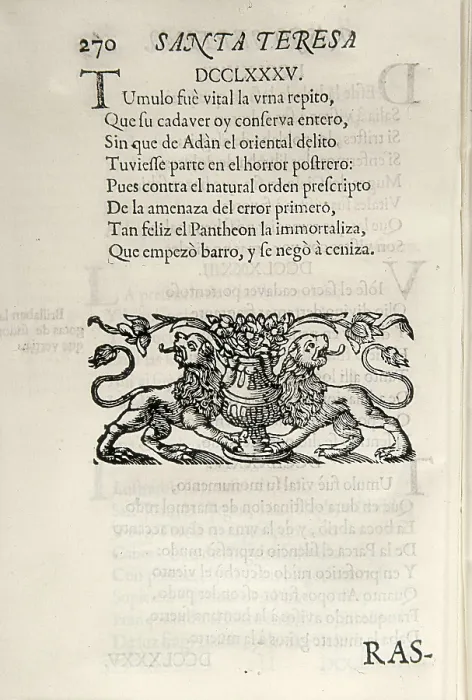 270 SANTA TERESA
DCCLXXXV.
TUmulo fuè vital la vrna repito,
Que ſu cadaver oy conſerva entero,
Sin que de Adàn el oriental delito
Tuvieſſe parte en el horror poſtrero:
Pues contra el natural orden preſcripto
De la amenaza del error primero,
Tan feliz el Pantheon la immortaliza,
Que empezò barro, y ſe negò à ceniza.
RAS-